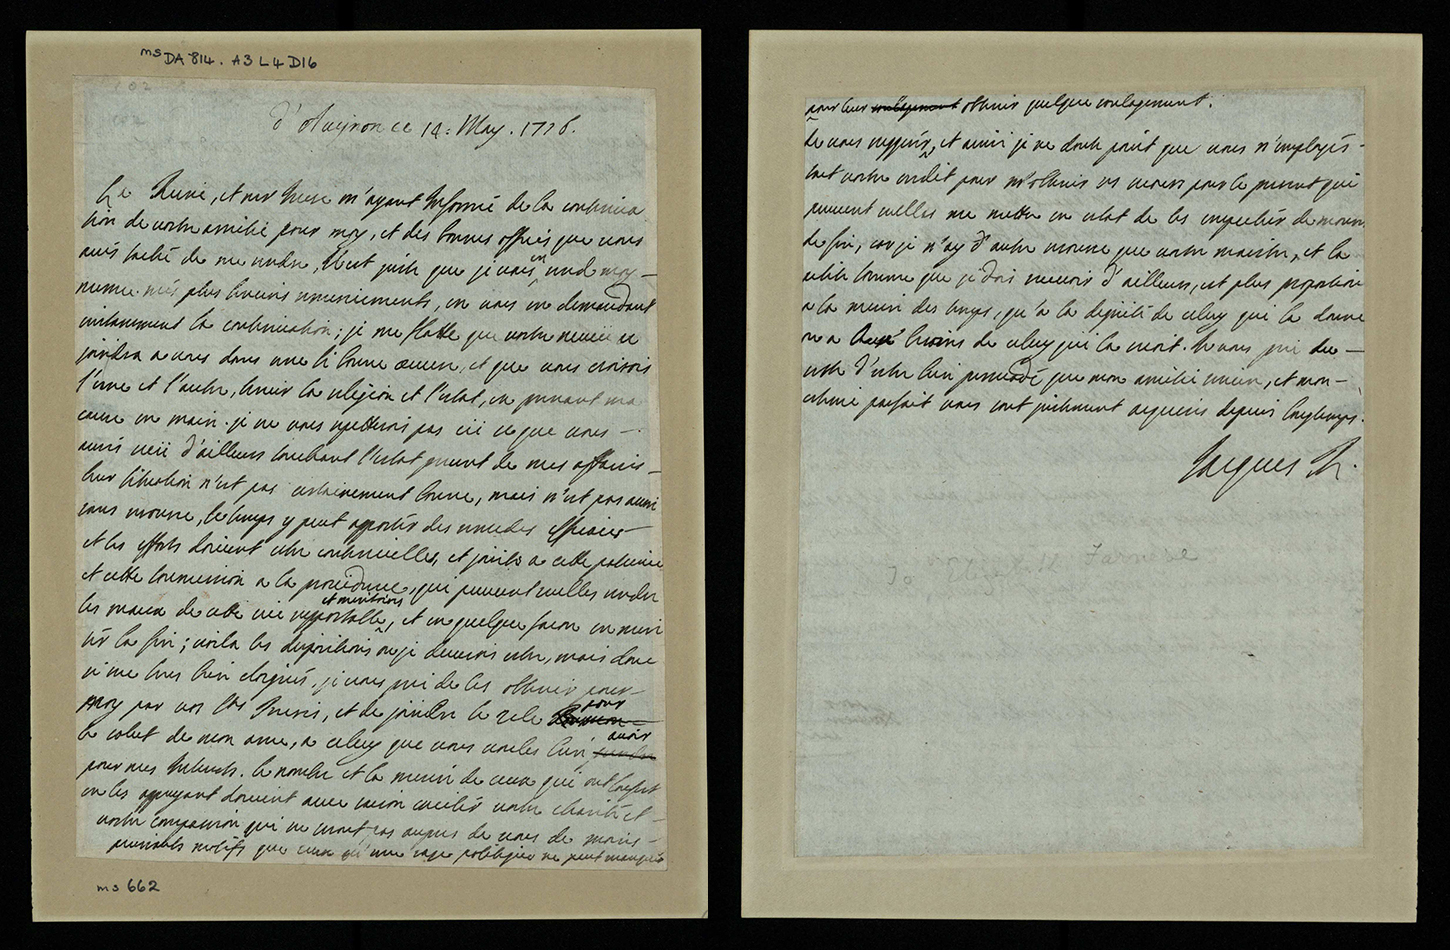 ms DA 814. A3 L4 D16
d'Avignon ce 14: May. 1716.
La Reine, et mr Innese m'ayant Informé de la continua
tion de vostre amitié pour moy, et des bonnes offices que vous
avés taché de me rendre, Il est juste que je vous en rende moy
mesme mes plus sinceres remerciments, en vous en demandant
instamment la continuation; je me flatte que vostre neveu se
joindra a vous dans une si bonne oeuvre, et que vous croirois
l'une et l'autre, servir la religion et l'estat, en prenant ma
cause en main. je ne vous repetterois pas ici ce que vous
aurés veü d'ailleurs touchant l'estat present de mes affaires
leur situation n'est pas certainement bonne, mais n'est pas aussi
sans resource, le temps y peut apporter des remedes efficaces
et les efforts doivent estre continuelles, et joints a cette patience
et cette soumission a la providence, qui peuvent seulles rendre
les maux de cette vie supportable, et meritoires et en quelque facon en meri
ter la fin; voila les dispositions ou je devrois estre, mais dont
je me sens bien eloigné, je vous prie de les obtenir pour
moy par vos Stes Prieres, et de joindre le zele pour
le salut de mon ame, a celuy que vous voules bien avoir
pour mes Interests. le nombre et la misere de ceux qui ont souffert
en les appuyant doivent avec raison exciter vostre charité et
vostre compassion qui ne seront pas aupres de vous de moins
puissants motifs que ceux qu'une sage politique ne peut manquer
pour leur obtenir quelque soulagement.
de vous suggerér, et ainsi je ne doute point que vous n'employés
tout vostre credit pour m'obtenir ces secours pour le present qui
peuvent seulles me mettre en estat de les empecher de mourir
de fin, car je n'ay d'autre resource que vostre maistre, et la
petite somme que je dois recevoir d'ailleurs, est plus proportion
a la misere des temps, qu'a la dignité de celuy qui la donne
ou a besoins de celuy qui la recoit. Je vous prie de
estre d'estre bien persuadé que mon amitié sincere, et mon
estime parfait vous sont justement acquises depuis longtemps.
Jacques R.
To Farnese
ms 662